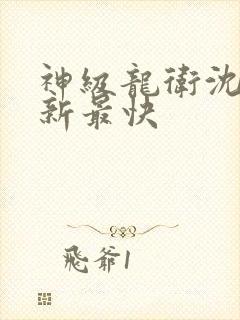 神級龍衛沈
新最快
飛爺1